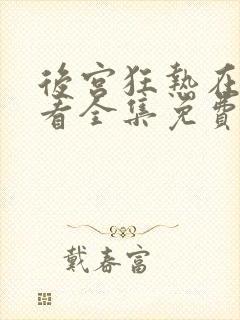 後宮狂熱在
看全集免費
戴春富